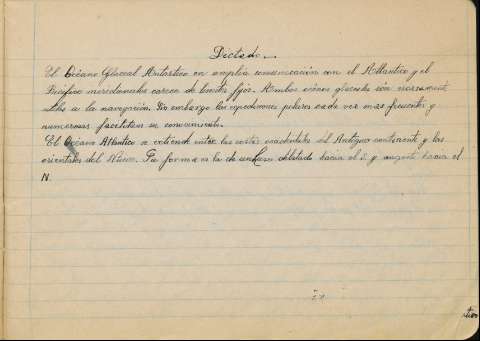 Dictado.
El Océano Glacial Antartico en amplia comunicación con el Atlantico y el
Pacifico meridionales carece de limites fijos. Ambos océanos glaciales son
a la navegación. Sin embargo las expediciones polares cada vez mas frecuentes y
numerosas facilitan su conocimiento.
El Océano Atlantico se extiende entre las costas occidentales del Antiguo continente y las
orientales del Nuevo. Su forma es la de un dilatado hacia el S. y angosto hacia el
N.